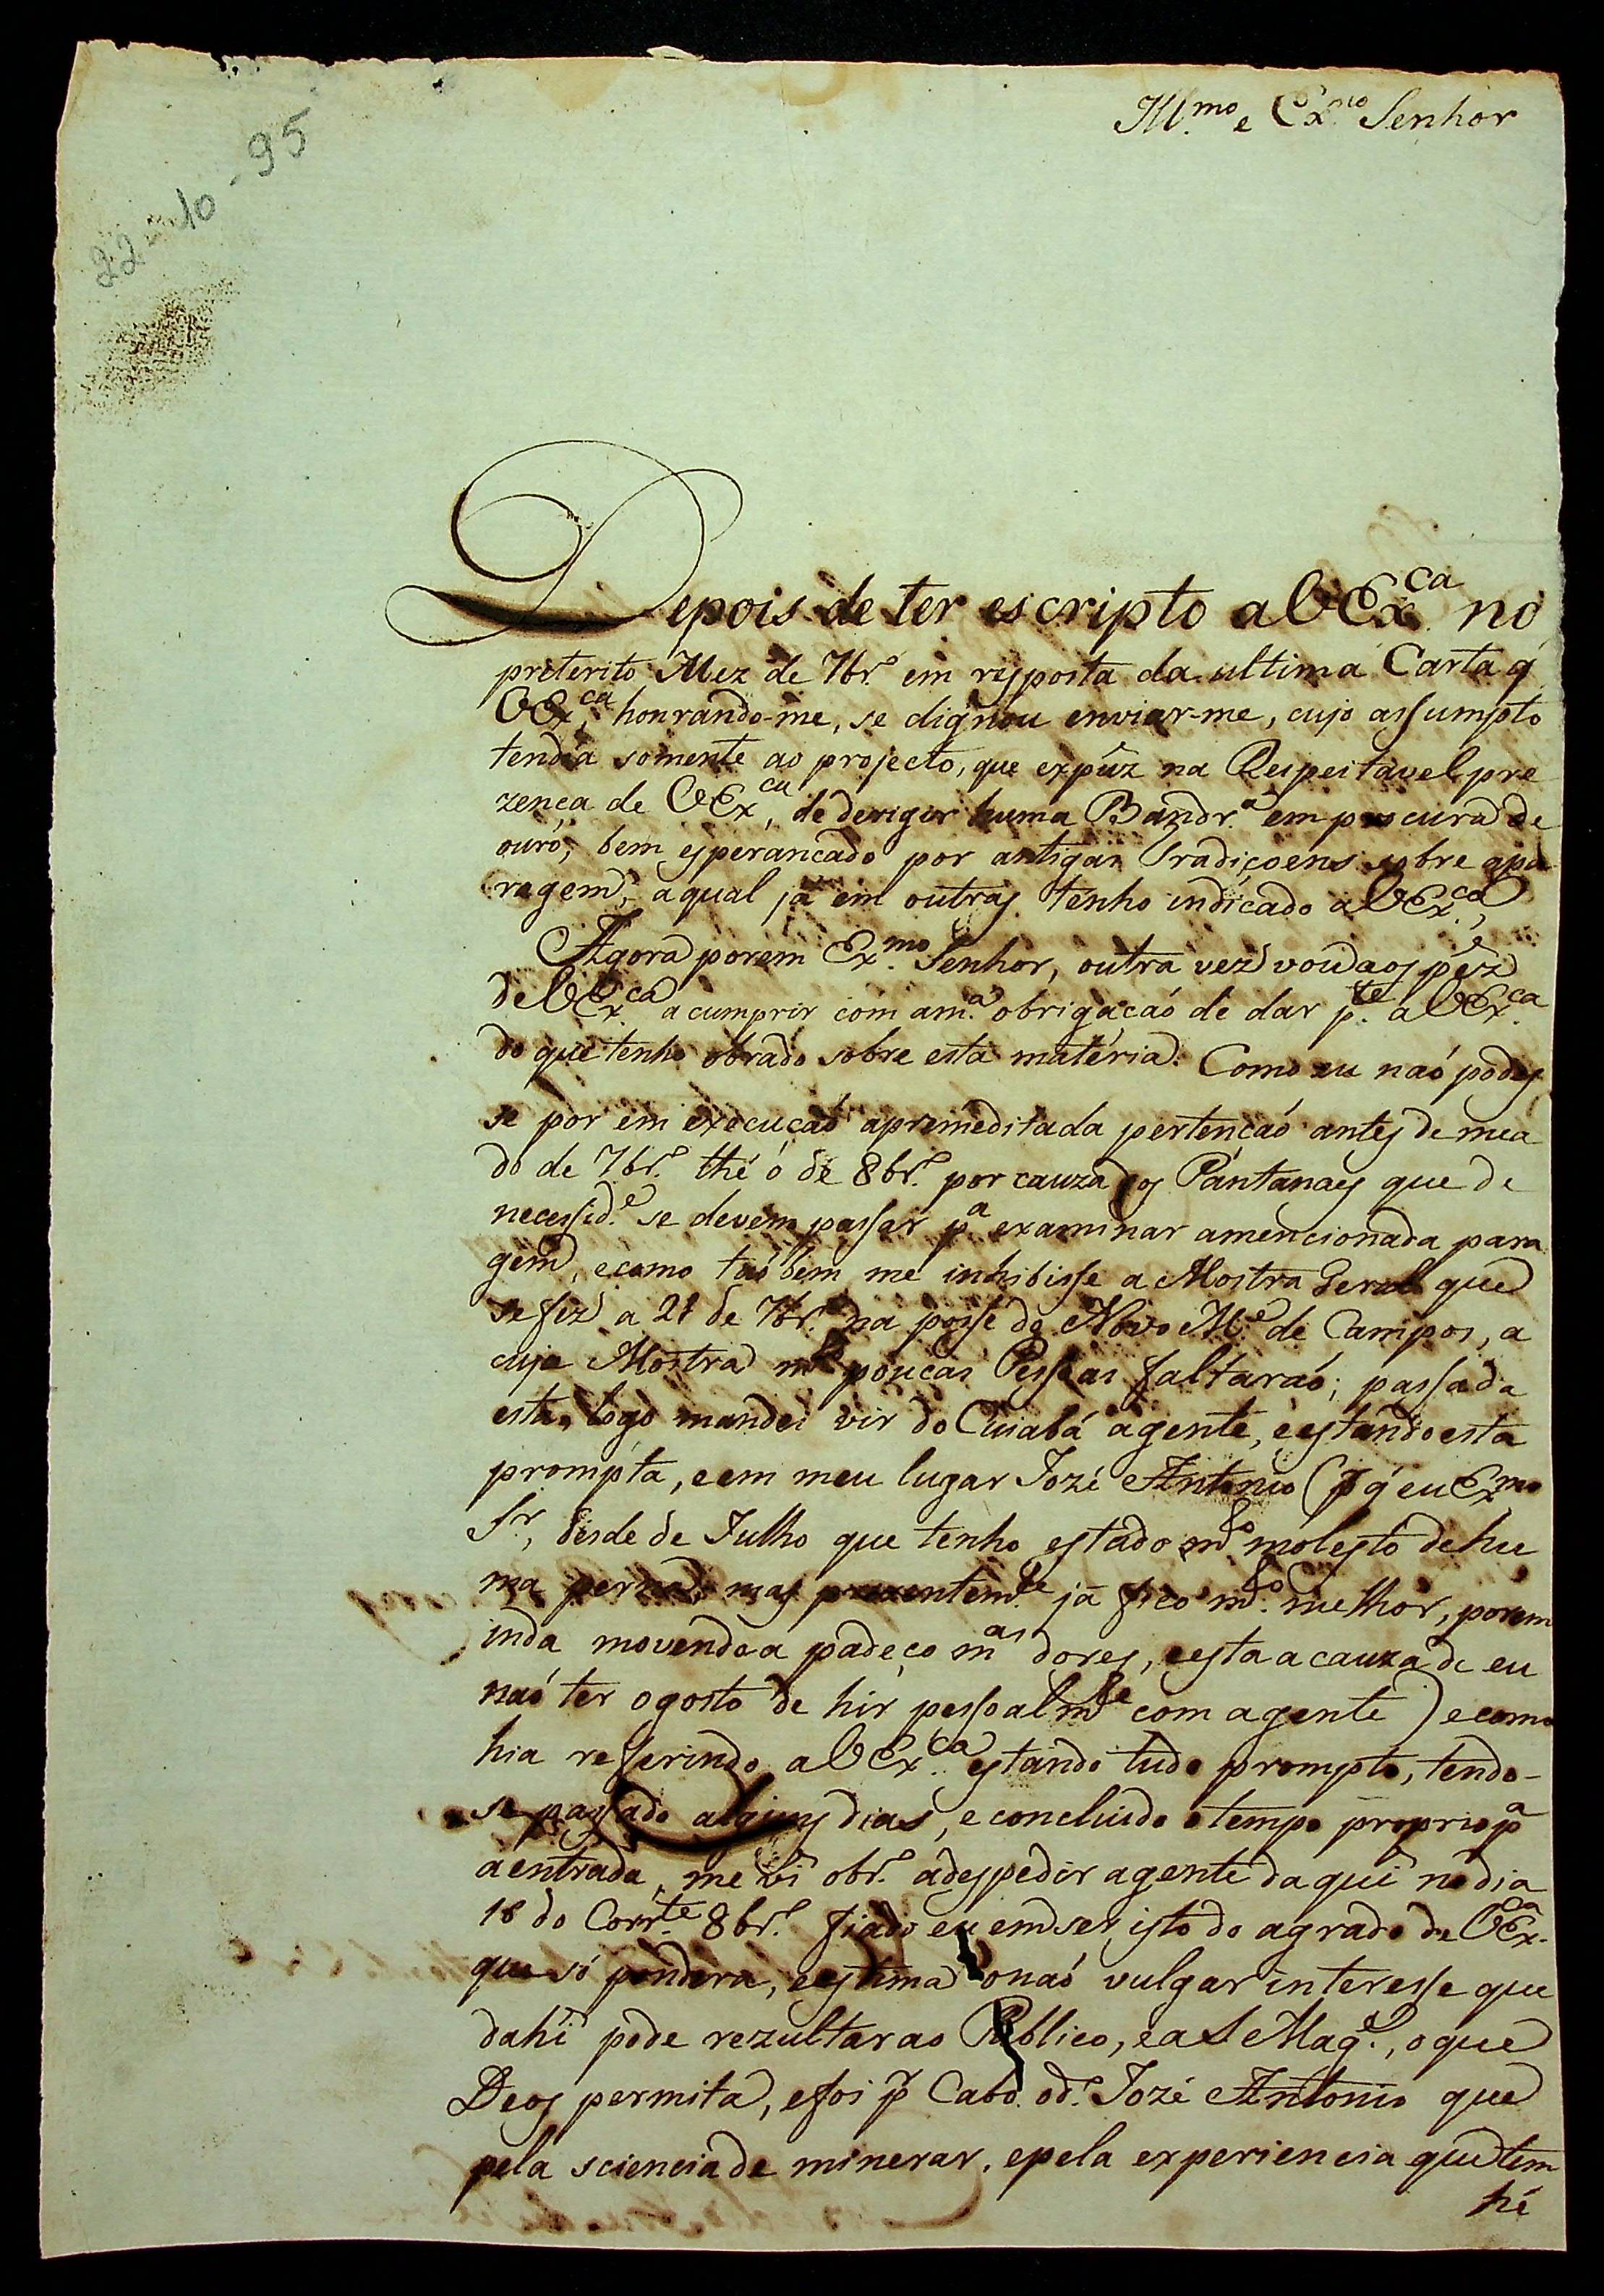 Ill.mo e Ex.mo Senhor
22-10-95
Depois de ter escripto a VEx.ca no
preterito Mez de 7br.o em resposta da ultima Carta q'
VEx.ca, honrando-me, se dignou enviar-me, cujo assumpto
tendia somente ao projecto, que expuz na Respeitavel pre
zença de VEx.ca, de derigir huma Bandr.a em procura de
ouro, bem esperancado por antigas Tradiçoens sobre apa
ragem, aqual já em outras tenho indicado a VEx.ca
Agora porem Ex.mo Senhor, outra vez vou aos péz
de VEx.ca a cumprir com am.a obrigacaó de dar p.te a VEx.ca
do que tenho obrado sobre esta matéria. Como eu naó podes
se por em execuçaó apremeditada pertencaó antes de mea
do de 7br.o thé o de 8br.o por cauza dos Pantanaes que de
necessid.e se devem passar p.a examinar amencionada para
gem, ecomo taóbem me inhibisse a Mostra Geral que
se fez a 21 de 7br.o na posse do Novo M.e de Campos, a
cuja Mostra m.to poucas Pessoas faltaraó; passada
esta, logo mandei vir do Cuiabá agente, eestando esta
prompta, eem meu lugar Jozé Antonio (p.r q' eu Ex.mo
S.r, desde de Julho que tenho estado m.to molesto dehu
ma perna, mas prezentem.te já fico m.to melhor, porem
inda movendoa padeço m.as dores, eesta acauza de eu
naó ter ogosto de hir pessoalm.te com agente) ecomo
hia referindo a VEx.ca estando tudo prompto, tendo-
se passado alguns dias, e concluido otempo proprio p.a
aentrada, me vi obr.o adespedir agente daqui no dia
18 do Corr.te 8br.o fiado eu emser isto do agrado de VEx.ca
que só pondera, eestima onaó vulgar interesse que
dahi pode rezultar ao Publico, ea S Mag.e, oque
Deos permita, efoi p.r Cabo od.o Jozé Antonio que
pela sciencia de minerar, epela experiencia que tem
hé